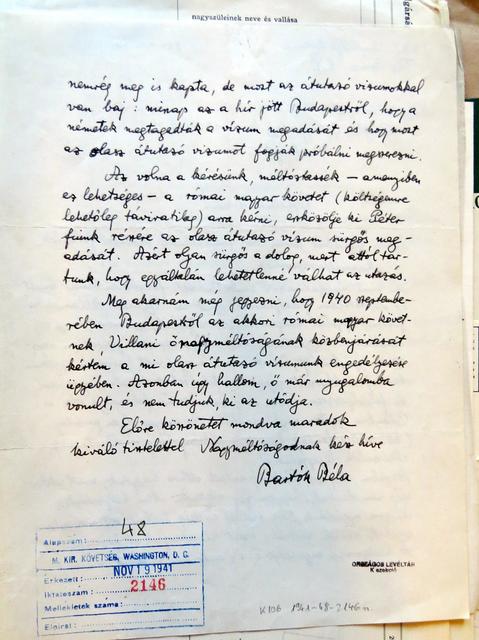 nagyszüleinek neve és vallása
nemrég meg is kapta, de most az átutazó vizumokkal
van baj: minap az a hír jött Budapestről, hogy a
németek megtagadták a vizum megadását és hogy most
az olasz átutazó vizumot fogják próbálni megszerezni.
Az volna a kérésünk, méltóztassék – amennyiben
ez lehetséges – a római magyar követet (költségemre
lehetőleg táviratilag) arra kérni, eszközölje ki Péter
fiunk részére az olasz átutazó vizum sürgős meg-
adását. Azért olyan sürgős a dolog, mert attól tar-
tunk, hogy egyáltalán lehetetlenné válhat az utazás.
Meg akarnám még jegyezni, hogy 1940 szeptembe-
rében Budapestről az akkori római magyar követ-
nek, Villani őnagyméltóságának közbenjárását
kértem a mi olasz átutazó vizumunk engedélyezése
ügyében. Azonban úgy hallom, ő már nyugalomba
vonult, és nem tudjuk, ki az utódja.
Előre köszönetet mondva maradok
kiváló tisztelettel Nagyméltóságodnak kész híve
Bartók Béla
Alapszám: 48
M. KIR. KÖVETSÉG, WASHINGTON, D. C.
Érkezett: NOV 19 1941
Iktatoszám: 2146
Mellékletek száma:
Előirat:
ORSZÁGOS LEVÉLTÁR
K szekció
K 106 1941-48-2146